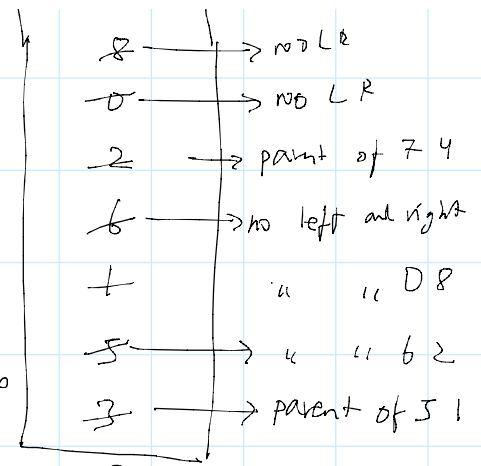 8 → no LR
0 → no L R
2 → parent of 7 4
6 → no left and right
1 " " 0 8
5 → " " 6 2
3 → parent of 5 1